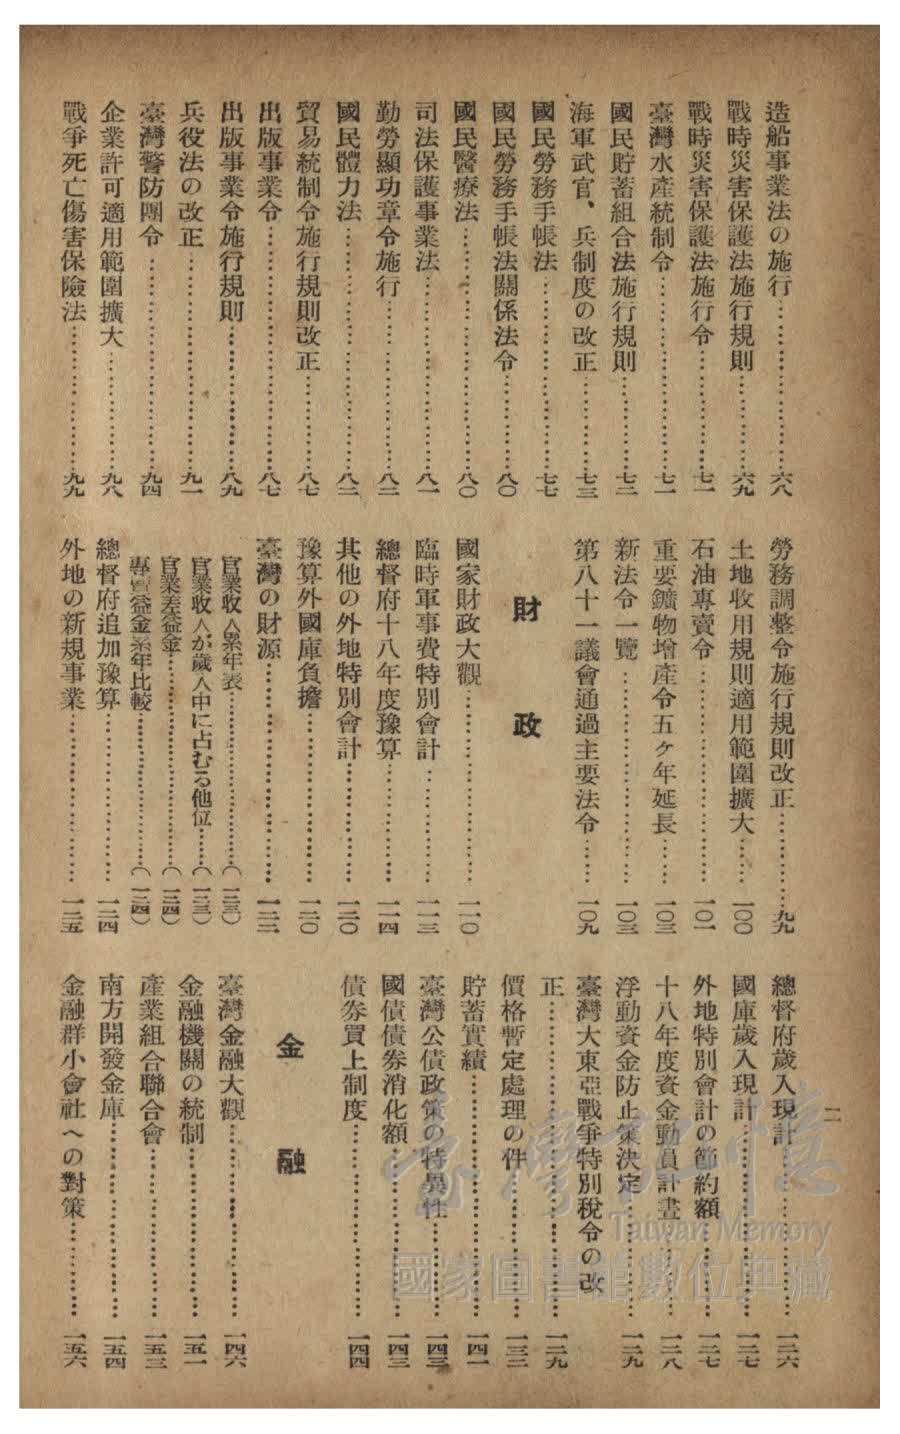 造船事業法の施行……………六八
戰時災害保護法施行規則……………六九
戰時災害保護法施行令……………七一
臺灣水產統制令……………七一
國民貯蓄組合法施行規則……………七二
海軍武官、兵制度の改正……………七三
國民勞務手帳法……………七七
國民勞務手帳法關係法令……………八〇
國民醫療法……………八〇
司法保護事業法……………八一
勤勞顯功章令施行……………八二
國民體力法……………八二
貿易統制令施行規則改正……………八七
出版事業令……………八七
出版事業令施行規則……………八九
兵役法の改正……………九一
臺灣警防團令……………九四
企業許可適用範圍擴大……………九八
戰爭死亡傷害保險法……………九九
勞務調整令施行規則改正……………九九
土地收用規則適用範圍擴大……一〇〇
石油專賣令……………一〇一
重要鑛物增產令五ケ年延長……一〇三
新法令一覽……………一〇三
第八十一議會通過主要法令……一〇九
財政
國家財政大觀……………一一〇
臨時軍事費特別會計……………一一三
總督府十八年度豫算……………一一四
其他の外地特別會計……………一二〇
豫算外國庫負擔……………一二〇
臺灣の財源……………一二二
官業收入累年表……………(一二三)
官業收入が歲入中に占むる他位……(一二三)
官業差益金……………(一二四)
專賣益金累年比較……………(一二四)
總督府追加豫算……………一二四
外地の新規事業……………一二五
二
總督府歲入現計……………一二六
國庫歲入現計……………一二七
外地特別會計の節約額……………一二七
十八年度資金動員計畫……………一二八
浮動資金防止策決定……………一二九
臺灣大東亞戰爭特別稅令の改
正……………一二九
價格暫定處理の件……………一三二
貯蓄實績……………一四一
臺灣公債政策の特異性……………一四三
國債債券消化額……………一四三
債券買上制度……………一四四
金融
臺灣金融大觀……………一四六
金融機關の統制……………一五一
產業組合聯合會……………一五三
南方開發金庫……………一五四
金融群小會社への對策……………一五六
臺灣記憶
Taiwan Memory
國家圖書館數位典藏